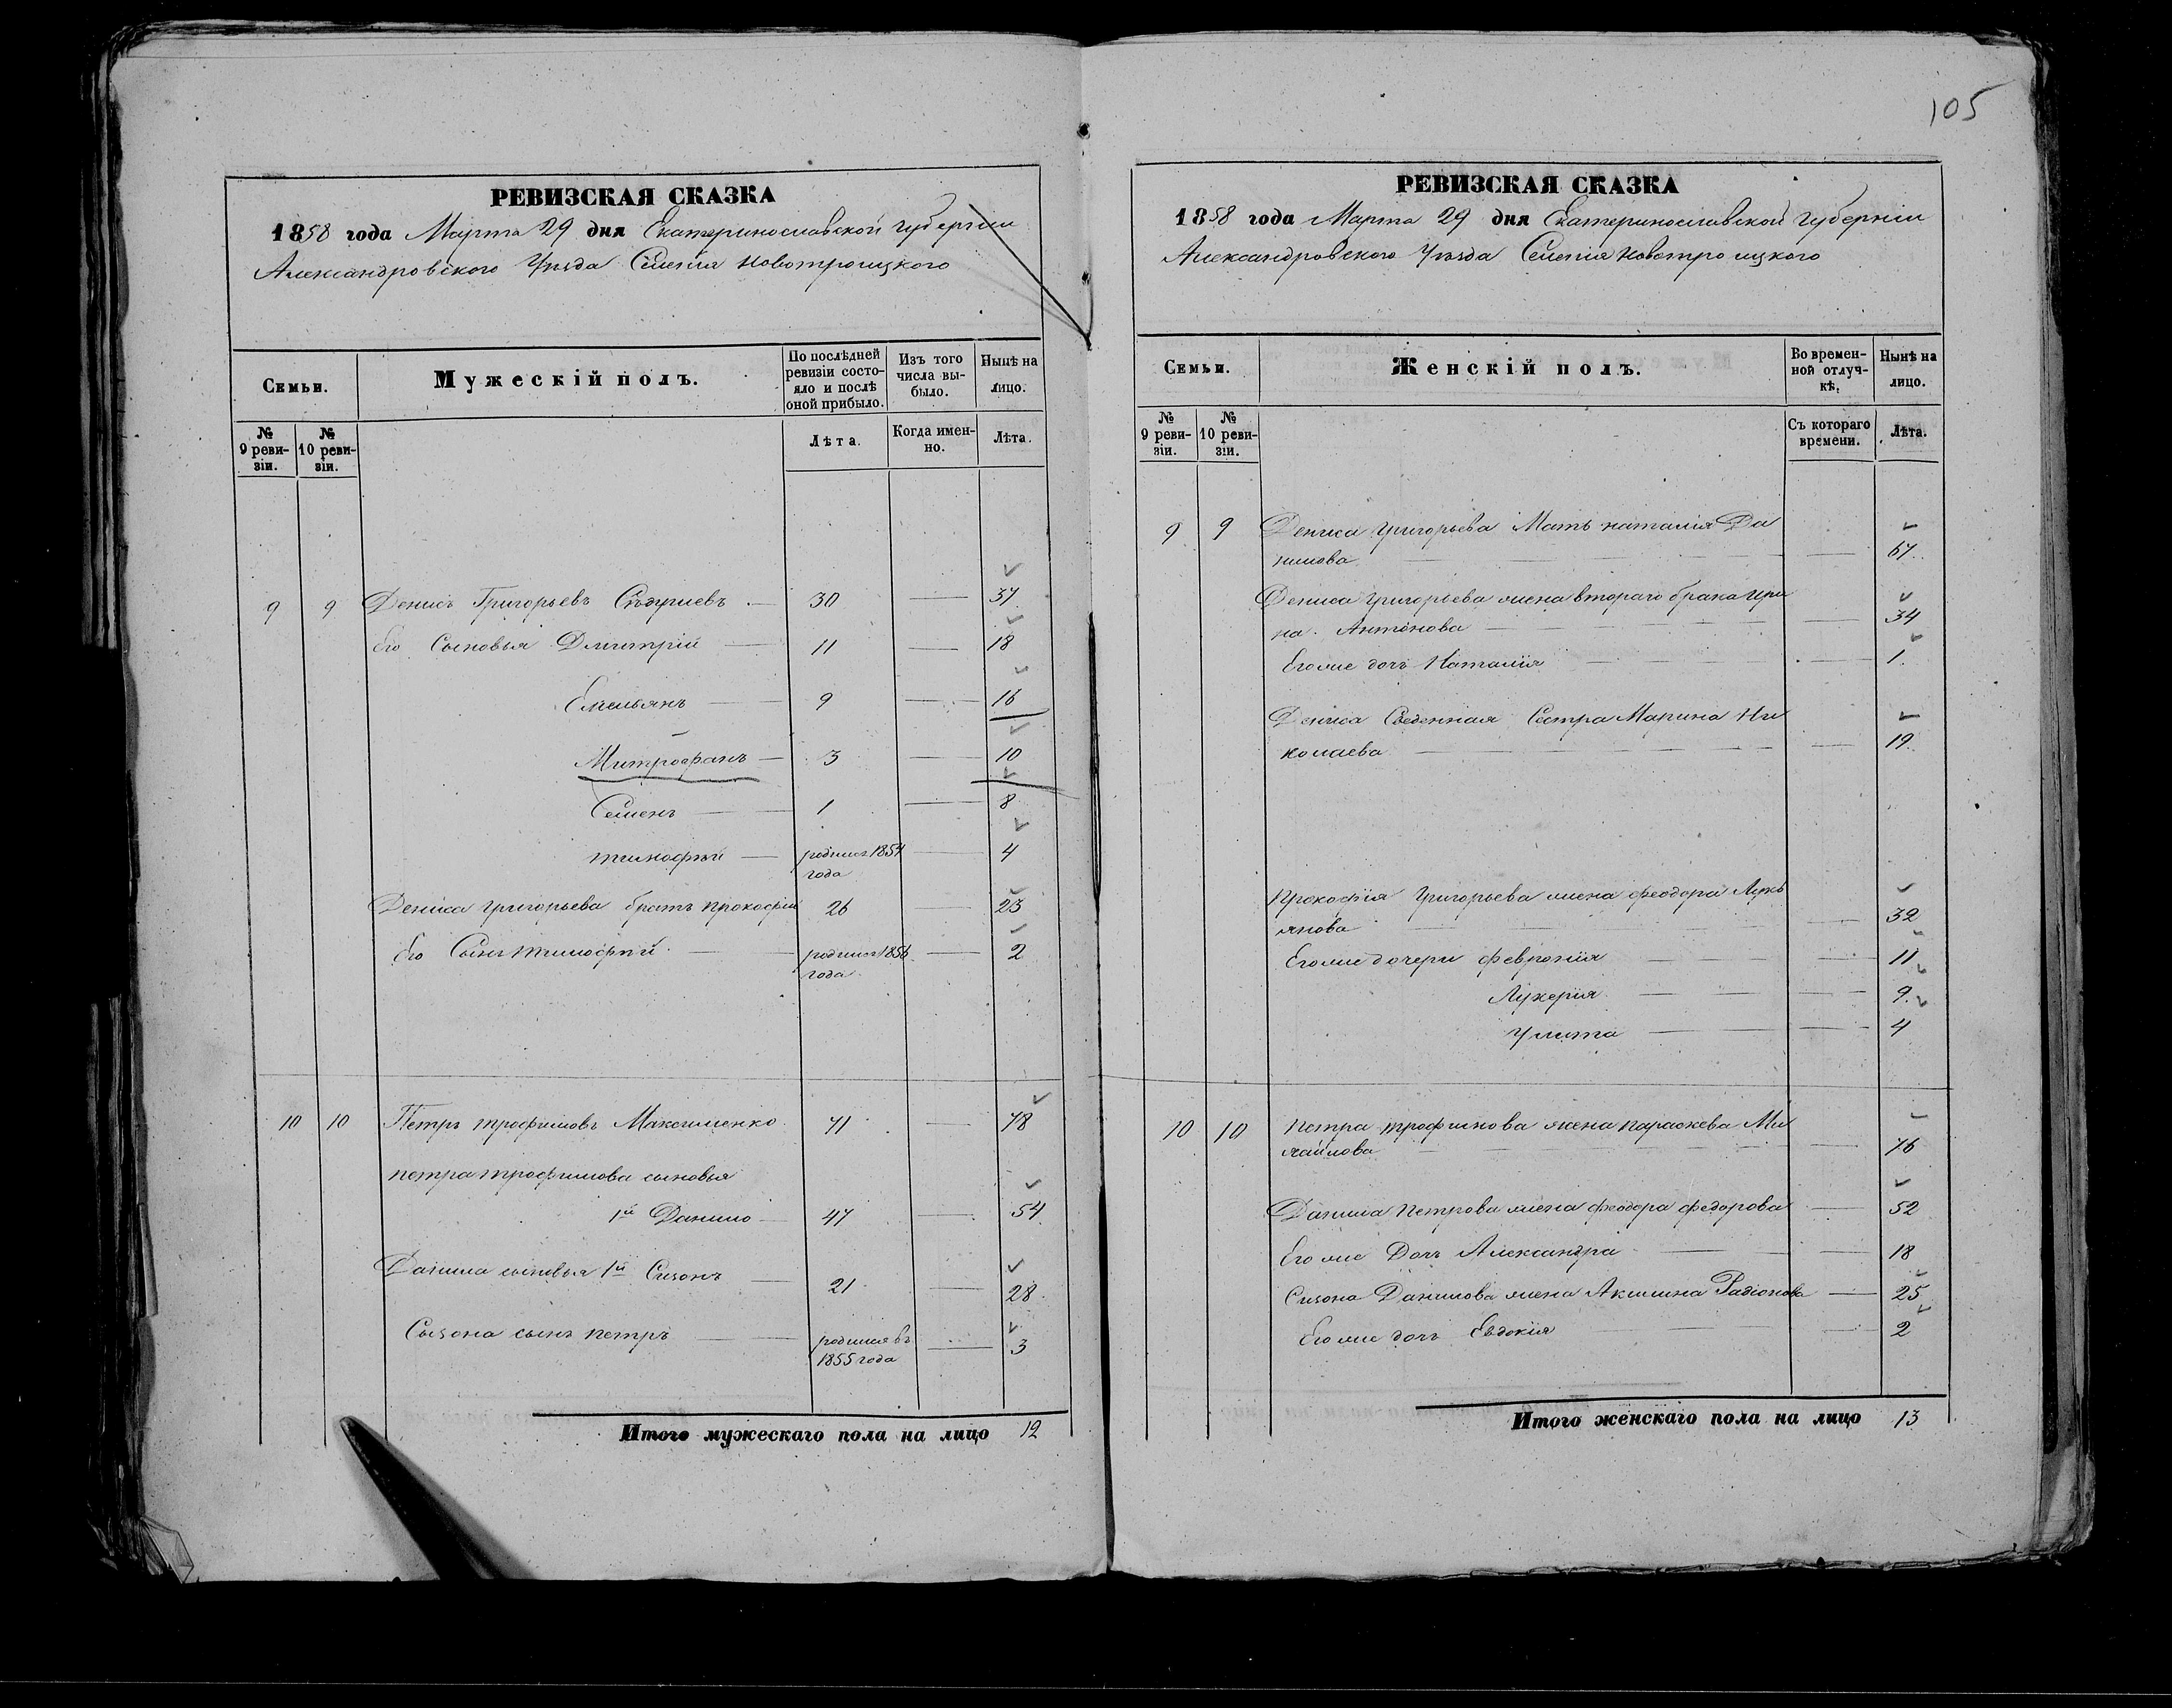 105
РЕВИЗСКАЯ СКАЗКА
1858 года Марта 29 дня Екатеринославской Губерніи
Александровского Уѣзда Селенія Новотроицкого
Семьи.
Мужескій полъ.
По послѣдней ревизіи состояло и послѣ оной прибыло.
Изъ того числа выбыло.
Нынѣ на лицо.
№ 9 ревизіи.
№ 10 ревизіи.
Лѣта.
Когда именно.
Лѣта.
9 9 Денисъ Григорьевъ 30 37
Его Сыновья Дмитрій 11 18
Емельянъ 9 16
Митрофанъ 3 10
Семенъ 1 8
Тимофѣй родился 1854 4
года
Дениса Григорьева братъ Прокофій 26 23
Его Сынъ Тимофѣй родился 1856 2
года
10 10 Петръ Трофимовъ Максименко 71 78
Петра Трофимова сыновья
1й Данило 47 54
Данила сыновья 1й Сизонъ 21 28
Сизона сынъ Петръ родился въ 3
1855 года
Итого мужескаго пола на лицо 12
РЕВИЗСКАЯ СКАЗКА
1858 года Марта 29 дня Екатеринославской Губерніи
Александровского Уѣзда Селенія Новотроицкого
Семьи.
Женскій полъ.
Во временной отлучкѣ.
Нынѣ на лицо.
№ 9 ревизіи.
№ 10 ревизіи.
Съ котораго времени.
Лѣта.
9 9 Дениса Григорьева Мать Наталія Да
нилова 67
Дениса Григорьева жена втораго брака Ири
на Антонова 34
Его же дочь Наталія 1
Дениса Сведенная Сестра Марина Ни
колаева 19
Прокофія Григорьева жена Феодора Лукь
янова 32
Его же дочери Февронія 11
Лукерія 9
Улита 4
10 10 Петра Трофимова жена Параскева Ми
хайлова 76
Данила Петрова жена Феодора Федорова 52
Его же Дочь Александра 18
Сизона Данилова жена Акилина Радіонова 25
Его же дочь Евдокія 2
Итого женскаго пола на лицо 13